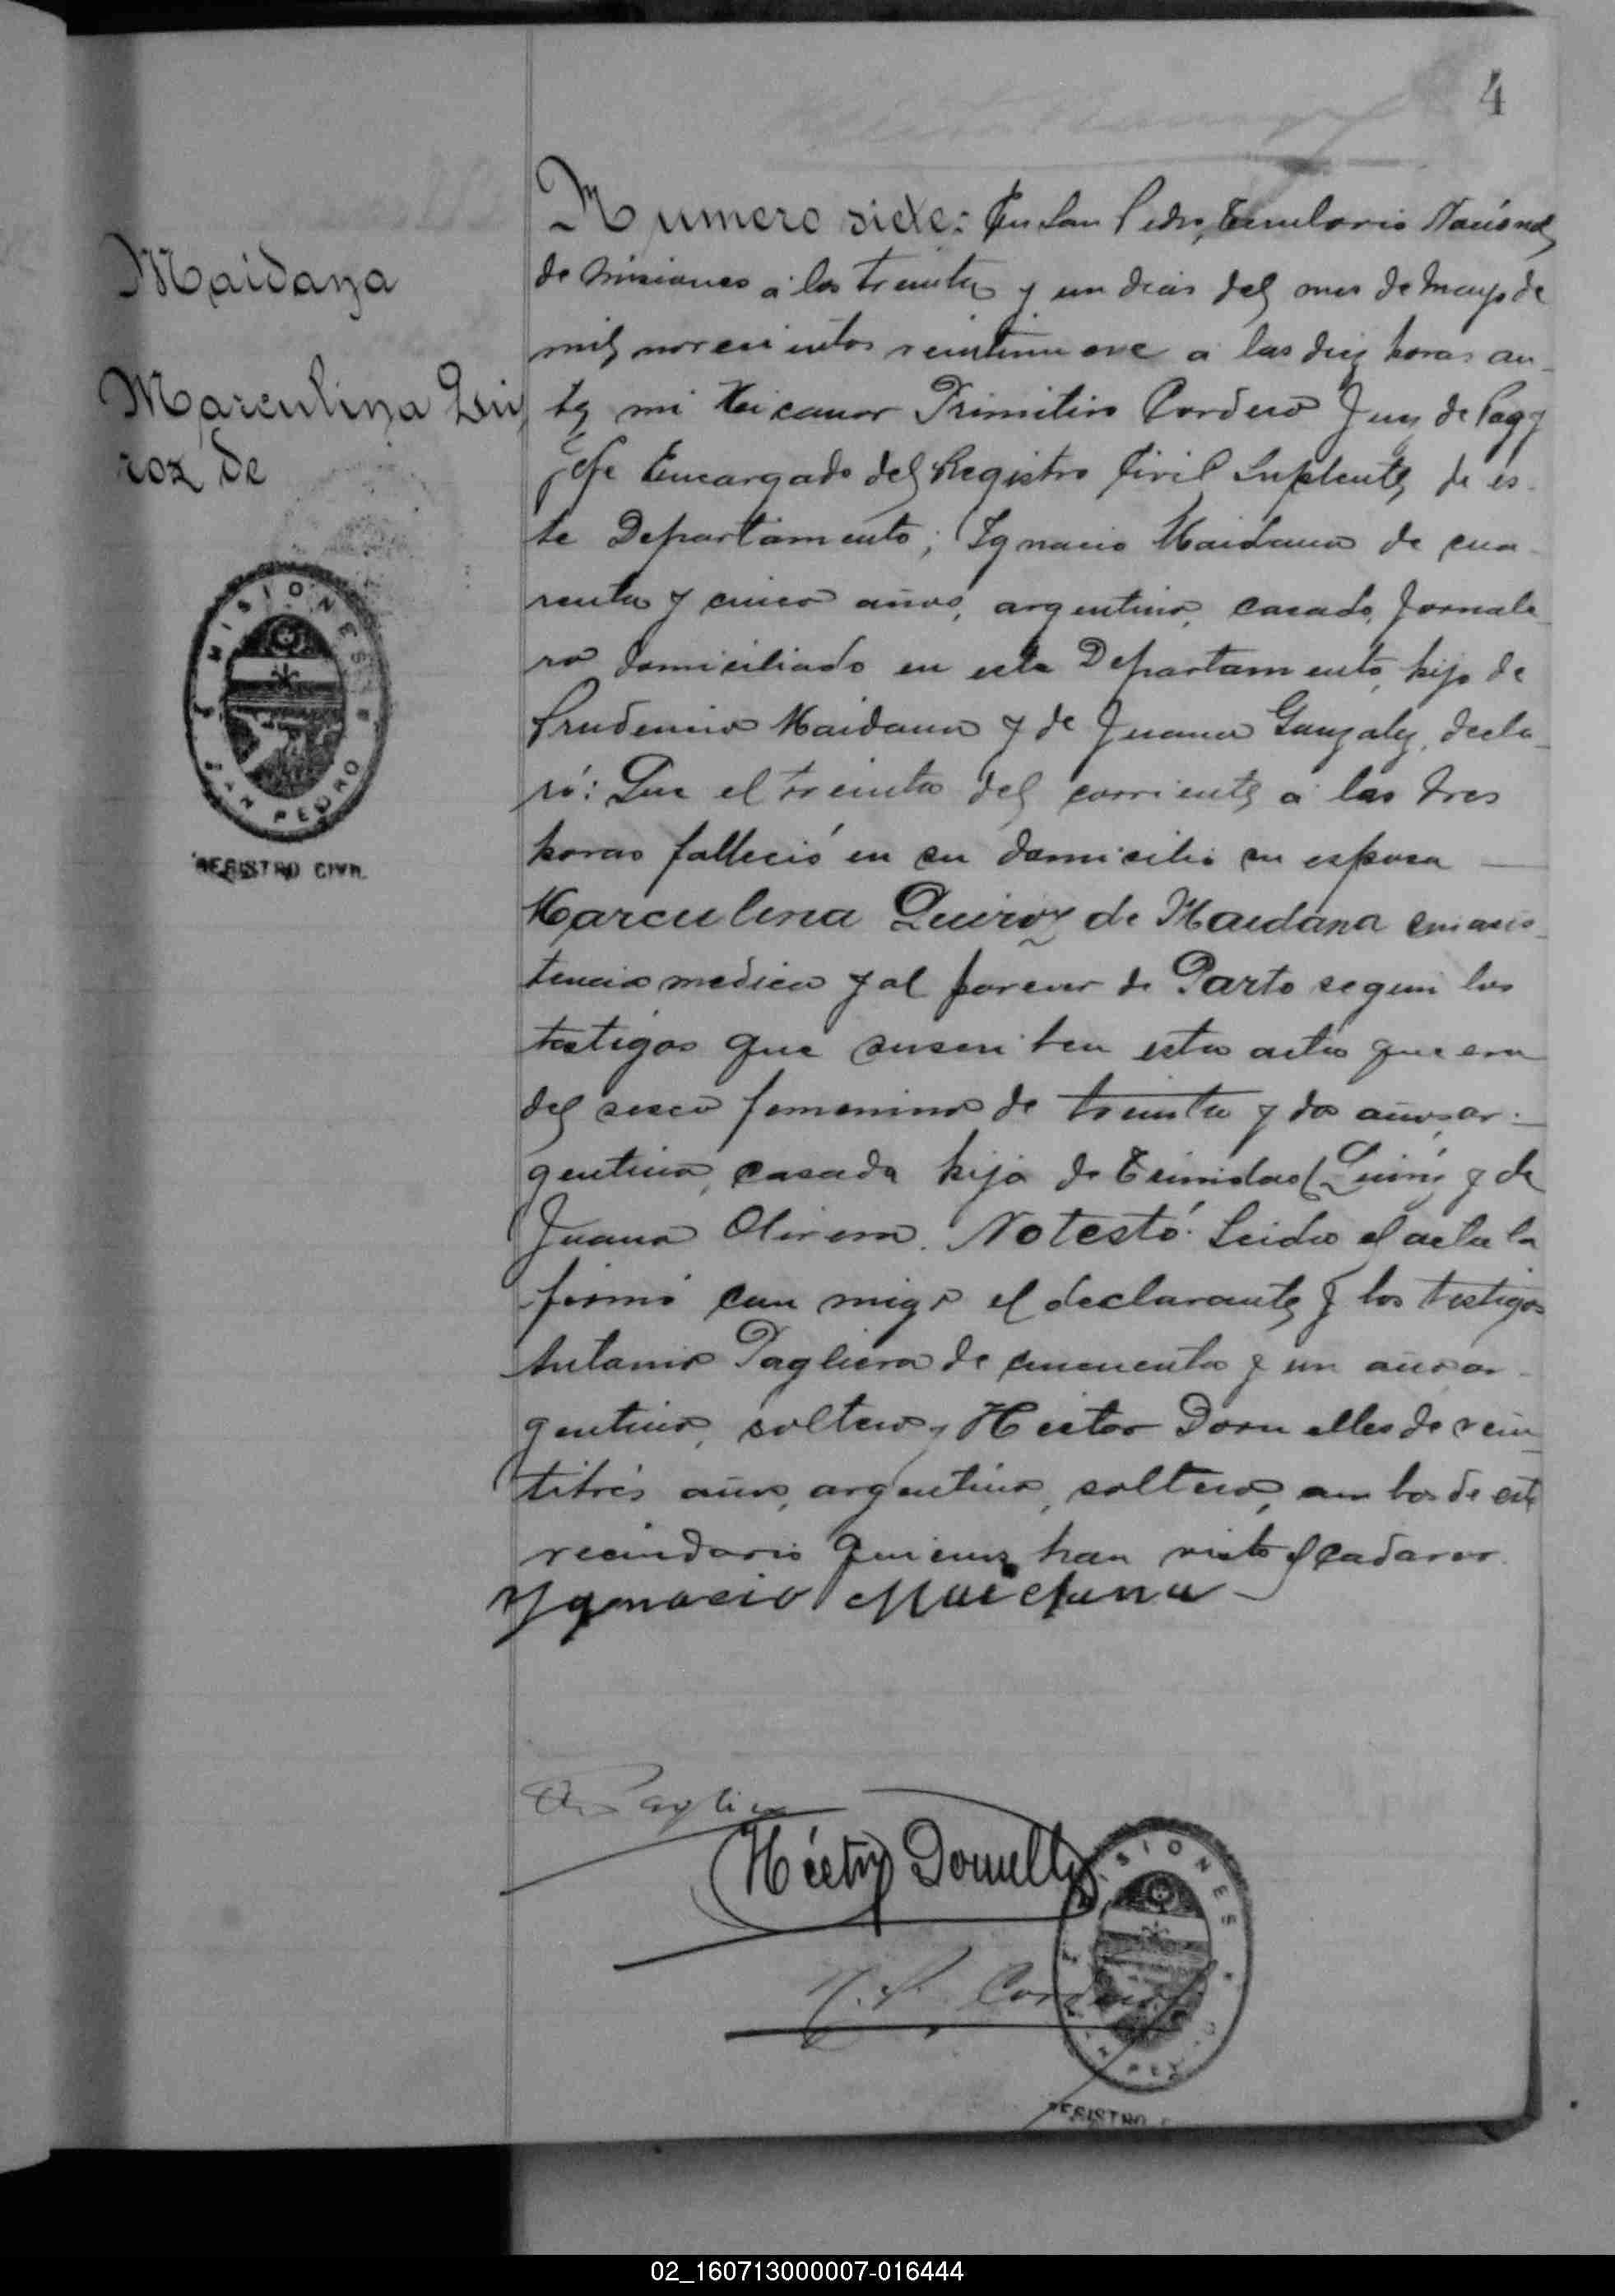 4
Numero siete: En San Pedro, Territorio Nacional
de Misiones a los treinta y un dias del mes de Mayo de
mil novecientos veintinueve a las diez horas an-
te mi Nicanor Primitivo Cordero Juez de Paz y
Jefe Encargado del Registro Civil Suplente de es-
te Departamento; Ignacio Maidana de cua-
renta y cinco años, argentino, casado, Jornale-
ro domiciliado en este Departamento, hijo de
Prudencio Maidana y de Juana Gonzalez, decla-
ró: Que el treinta del corriente a las tres
horas falleció en su domicilio su esposa
Marculina Quiroz de Maidana sin asis-
tencia medica y al parecer de Parto segun los
testigos que suscriben esta acta que era
del sexo femenino de treinta y dos años, ar-
gentina, casada hija de Trinidad Quiroz y de
Juana Olivera. No testó. Leida el acta la
firmó con migo el declarante y los testigos
Antonio Pagliera de cincuenta y un años ar-
gentino, soltero y Hector Dornelles de vein-
titrés años, argentino, soltero, ambos de este
vecindario quienes han visto el cadaver.
Ygnacio Maidana
Héctor Dornelles
N. P. Cordero
Maidana
Marculina Qui
roz de
MISIONES
SAN PEDRO
REGISTRO CIVIL
MISIONES
REGISTRO
02_160713000007-016444